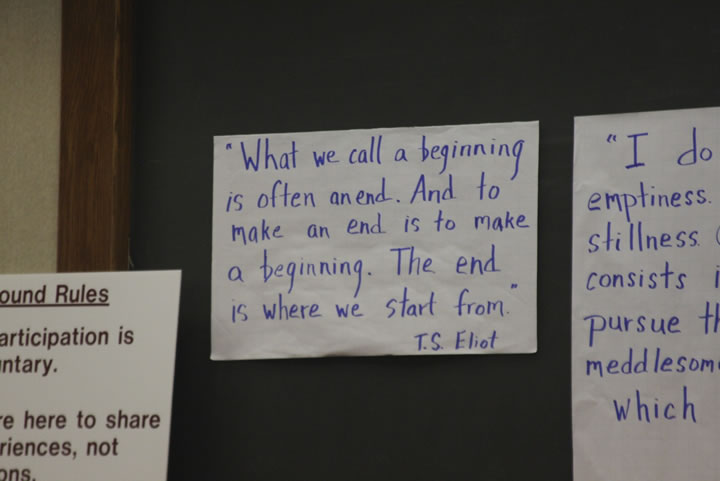 ound Rules
articipation is
ntary.
re here to share
riences, not
ons.
"What we call a beginning
is often an end. And to
make an end is to make
a beginning. The end
is where we start from."
T.S. Eliot
"I do
emptiness.
stillness
consists
pursue th
meddlesom
which